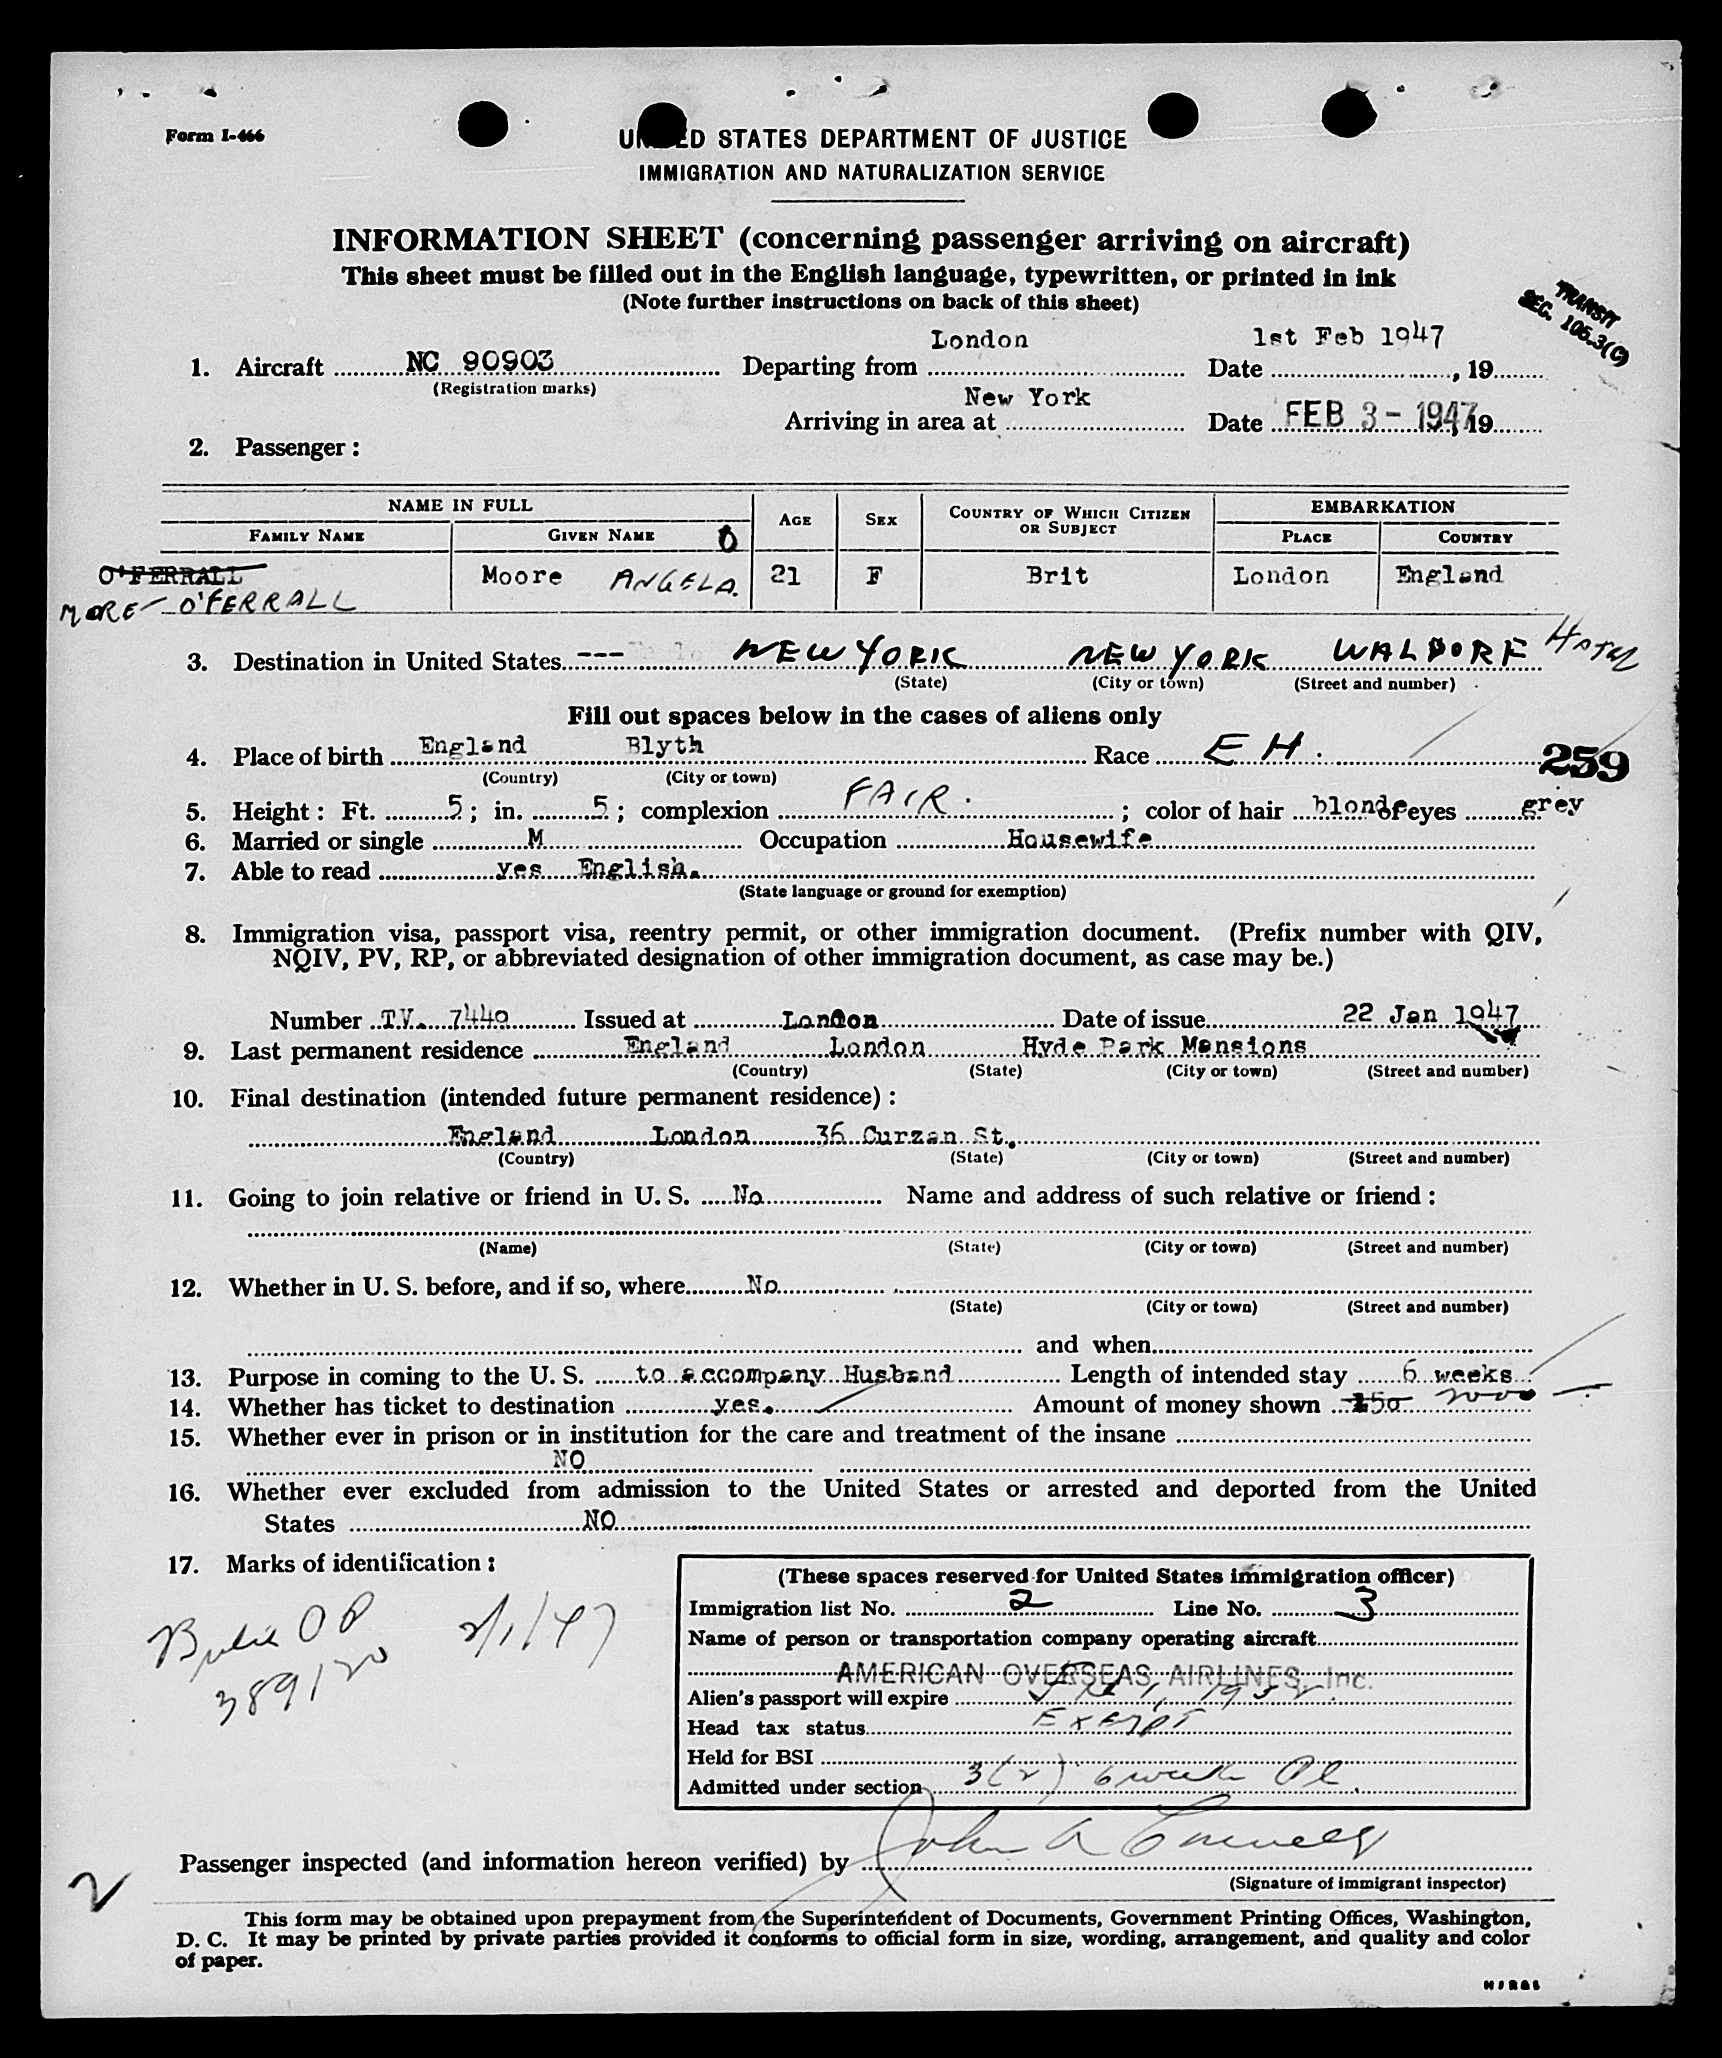 Form I-466
UNITED STATES DEPARTMENT OF JUSTICE
IMMIGRATION AND NATURALIZATION SERVICE
INFORMATION SHEET (concerning passenger arriving on aircraft)
This sheet must be filled out in the English language, typewritten, or printed in ink
(Note further instructions on back of this sheet)
TRANSIT
SEC. 106.3(C)
1. Aircraft NC 90903 Departing from London Date 1st Feb 1947, 19
(Registration marks)
Arriving in area at New York Date FEB 3 - 1947, 19
2. Passenger :
NAME IN FULL AGE SEX COUNTRY OF WHICH CITIZEN OR SUBJECT EMBARKATION
FAMILY NAME GIVEN NAME PLACE COUNTRY
O'FERRALL Moore ANGELA. 21 F Brit London England
MORE - O'FERRALL
3. Destination in United States --- NEW YORK NEW YORK WALDORF HOTEL
(State) (City or town) (Street and number)
Fill out spaces below in the cases of aliens only
4. Place of birth England Blyth Race E H.
(Country) (City or town)
259
5. Height : Ft. 5 ; in. 5 ; complexion FAIR. ; color of hair blonde of eyes grey
6. Married or single M Occupation Housewife
7. Able to read yes English.
(State language or ground for exemption)
8. Immigration visa, passport visa, reentry permit, or other immigration document. (Prefix number with QIV,
NQIV, PV, RP, or abbreviated designation of other immigration document, as case may be.)
Number TV. 7449 Issued at London Date of issue 22 Jan 1947
9. Last permanent residence England London Hyde Park Mansions
(Country) (State) (City or town) (Street and number)
10. Final destination (intended future permanent residence) :
England London 36 Curzan St.
(Country) (State) (City or town) (Street and number)
11. Going to join relative or friend in U. S. No Name and address of such relative or friend :
(Name) (State) (City or town) (Street and number)
12. Whether in U. S. before, and if so, where No
(State) (City or town) (Street and number)
and when
13. Purpose in coming to the U. S. to accompany Husband Length of intended stay 6 weeks
14. Whether has ticket to destination yes. Amount of money shown 150 2000
15. Whether ever in prison or in institution for the care and treatment of the insane
NO
16. Whether ever excluded from admission to the United States or arrested and deported from the United
States NO
17. Marks of identification :
2/1/47
389120
(These spaces reserved for United States immigration officer)
Immigration list No. 2 Line No. 3
Name of person or transportation company operating aircraft
AMERICAN OVERSEAS AIRLINES, Inc.
Alien's passport will expire 1952
Head tax status Exempt
Held for BSI
Admitted under section 3(2) 6 weeks
Passenger inspected (and information hereon verified) by John A
(Signature of immigrant inspector)
2
This form may be obtained upon prepayment from the Superintendent of Documents, Government Printing Offices, Washington,
D. C. It may be printed by private parties provided it conforms to official form in size, wording, arrangement, and quality and color
of paper.